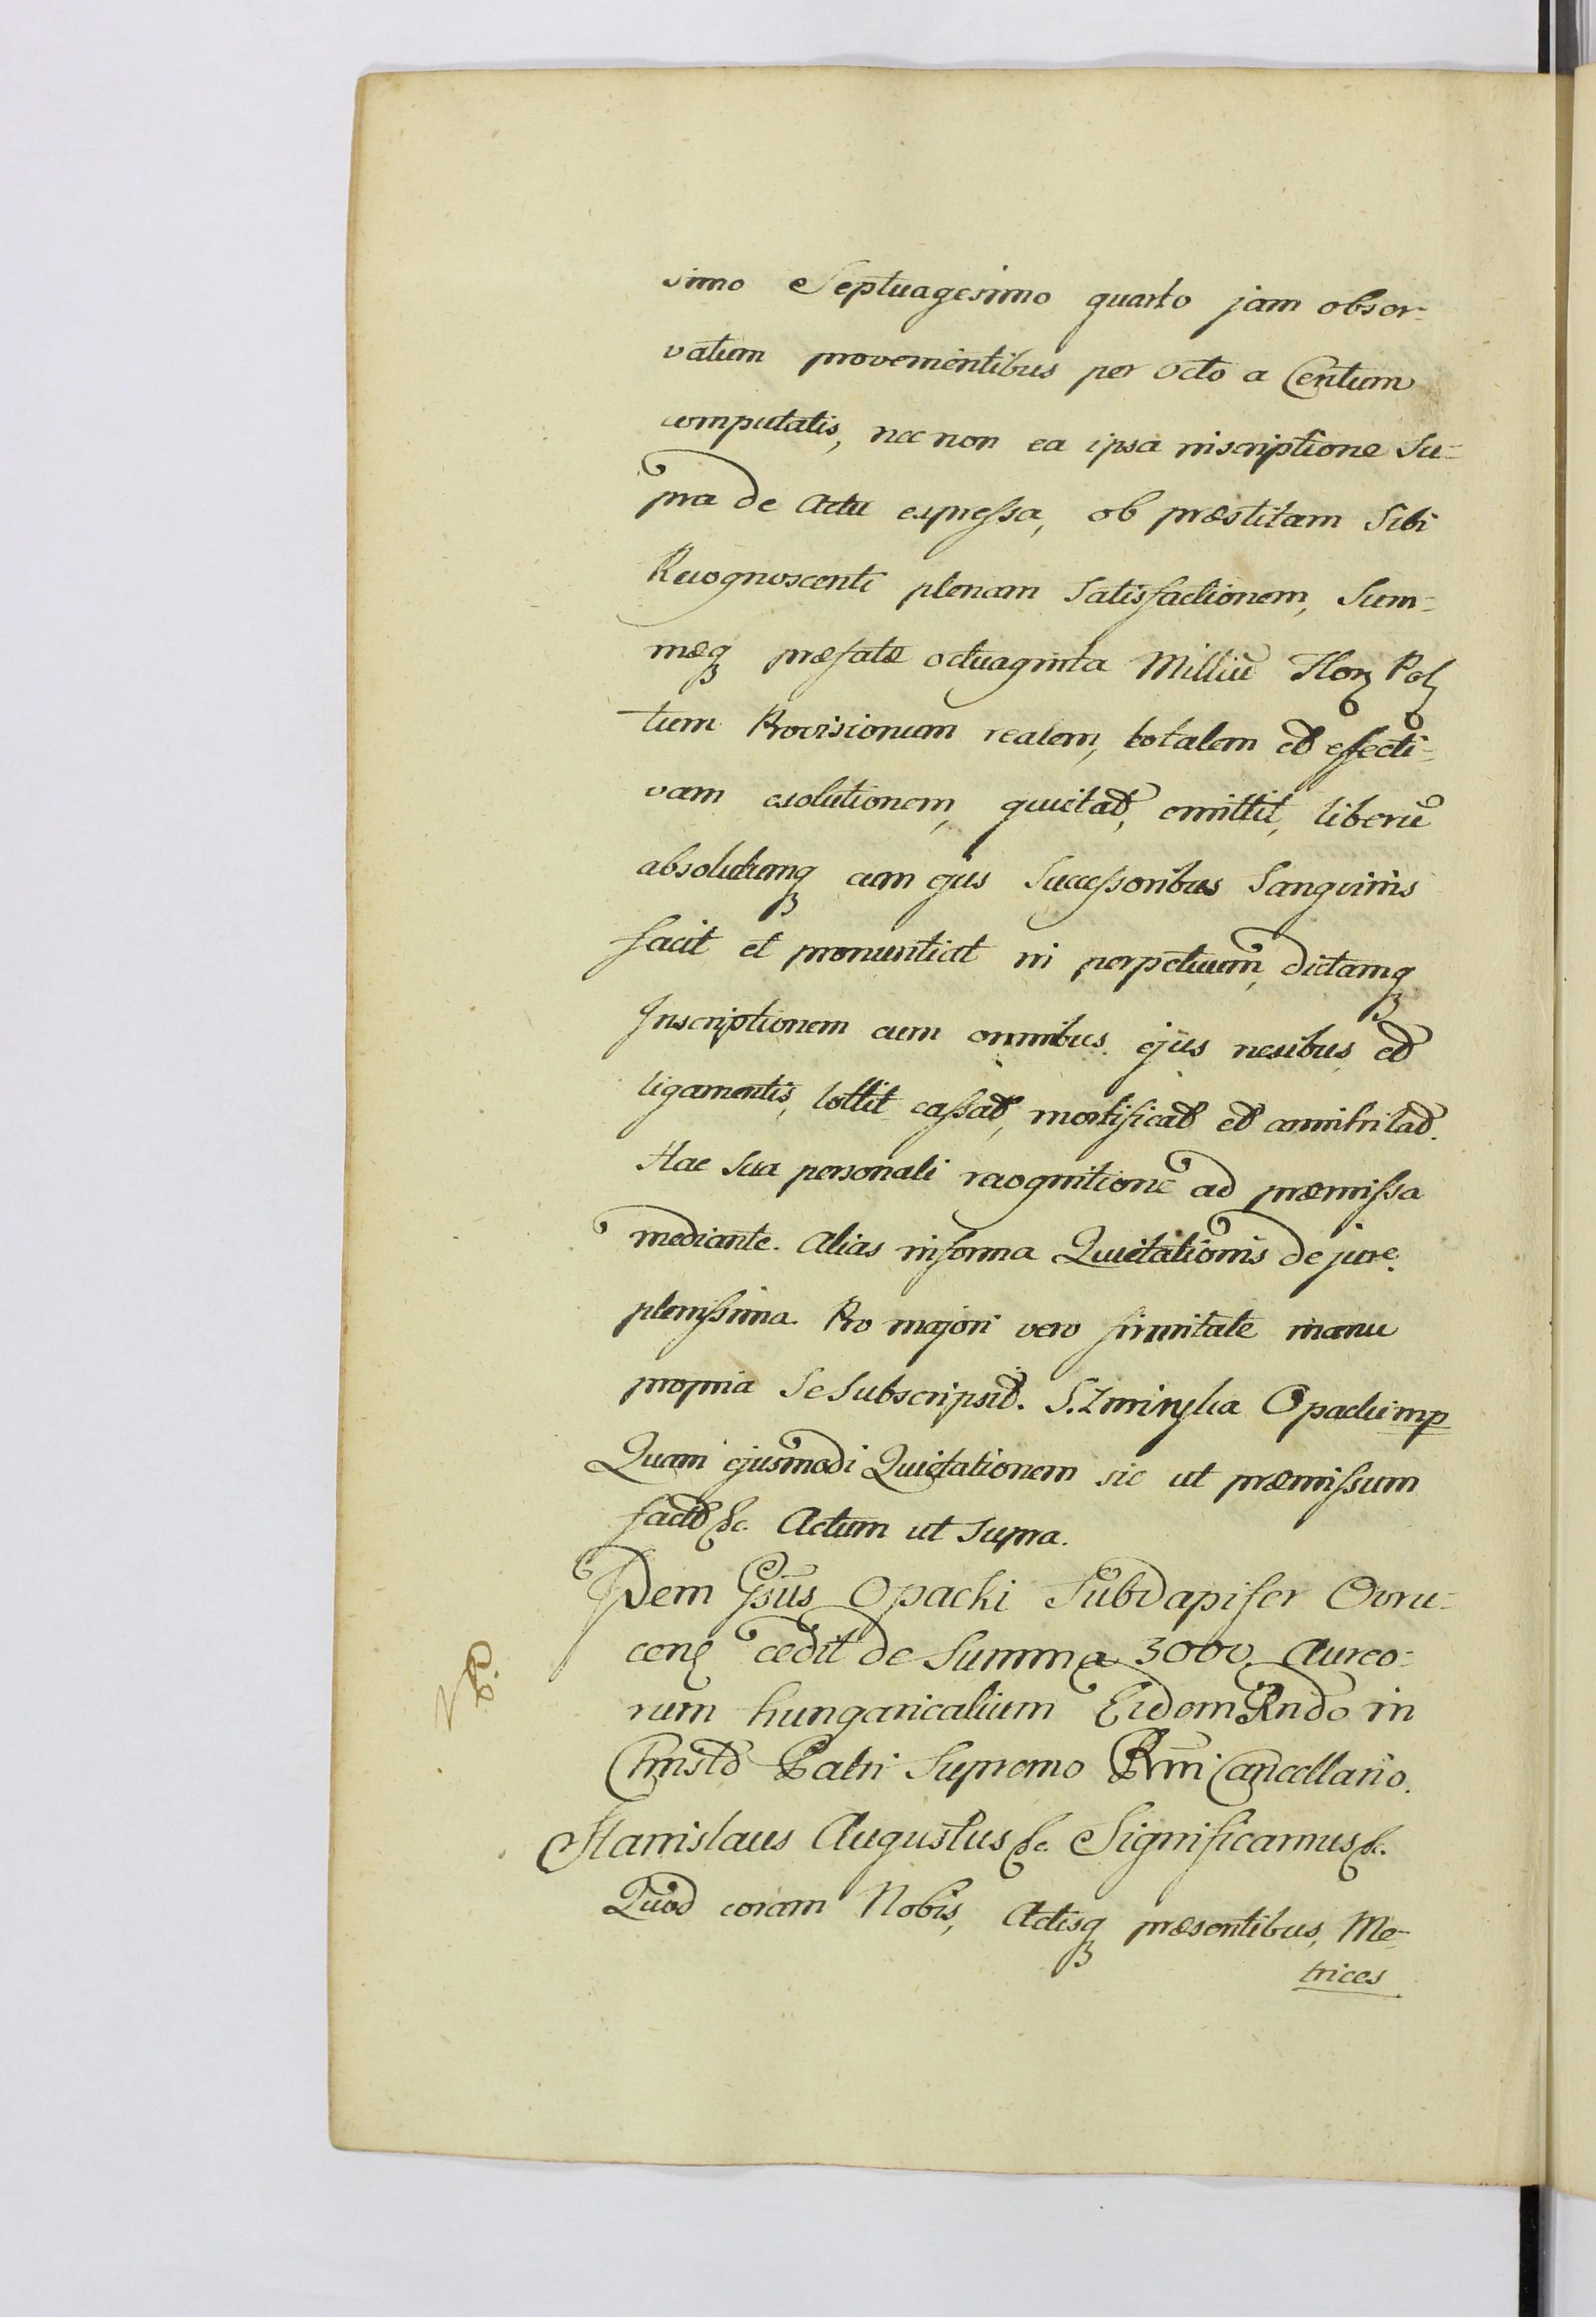 simo Septuagesimo quarto jam obser-
vatum provenientibus per octo a Centum
computatis, nec non ea ipsa inscriptione Su-
pra de Actu expressa, ob præstitam Sibi
Recognoscenti plenam Satisfactionem, Sum-
mæq præfatæ octuaginta Milliū Flor Pol
tum Provisionum realem, totalem et effecti-
vam exolutionem, quietat, emittit, liberū
absolutumq cum ejus Successoribus Sanguinis
facit et pronuntiat in perpetuum, dictamq
Inscriptionem cum omnibus ejus nexibus, et
ligamentis, tollit cassat, mortificat et annihilat.
Hac Sua personali recognitione ad præmissa
mediante. Alias in forma Quietationis de jure
plenissima. Pro majori vero firmitate manu
propria Se Subscripsit. S. Opacki mp
Quam ejusmodi Quietationem sic ut præmissum
fact &c. Actum ut Supra.
Idem Gsūs Opacki Subdapifer Ovru-
cen cedit de Summa 3000 Aureo-
rum hungaricalium Eidem Rndo in
Christo Patri Supremo Rni Cancellario.
Stanislaus Augustus &c. Significamus &c.
Quod coram Nobis, Actisq præsentibus, Me-
trices